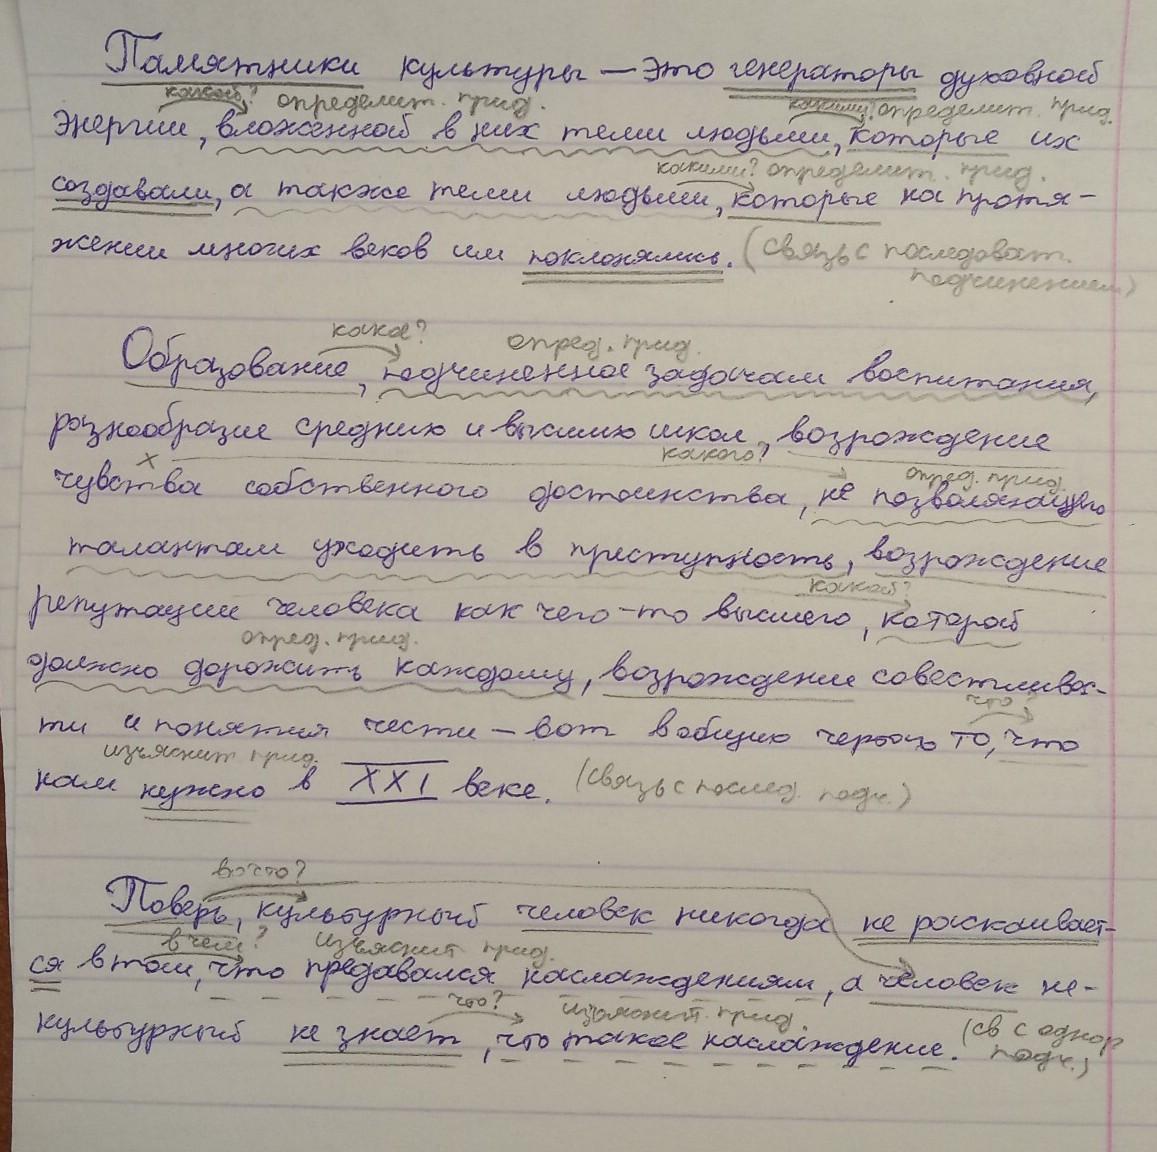 Памятники культуры — это генераторы духовной
какой? определит. прид. какими? определит. прид.
энергии, вложенной в них теми людьми, которые их
какими? определит. прид.
создавали, а также теми людьми, которые на протя-
жении многих веков им поклонялись. (связь с последоват.
подчинением)
какое? опред. прид.
Образование, подчиненное задачам воспитания,
разнообразие средних и высших школ, возрождение
х какого? опред. прид.
чувства собственного достоинства, не позволяющего
талантам уходить в преступность, возрождение
какой?
репутации человека как чего-то высшего, которой
опред. прид.
должно дорожить каждому, возрождение совестливос-
что?
ти и понятия чести — вот в общих чертах то, что
изъяснит прид.
нам нужно в XXI веке. (связь с послед. подч.)
во что?
Поверь, культурный человек никогда не раскаивает-
в чем? изъяснит прид.
ся в том, что предавался наслаждениям, а человек не-
что? изъяснит. прид.
культурный не знает, что такое наслаждение. (св с однор
подч.)